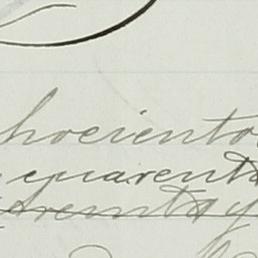 hociento
cuarenta
treinta y